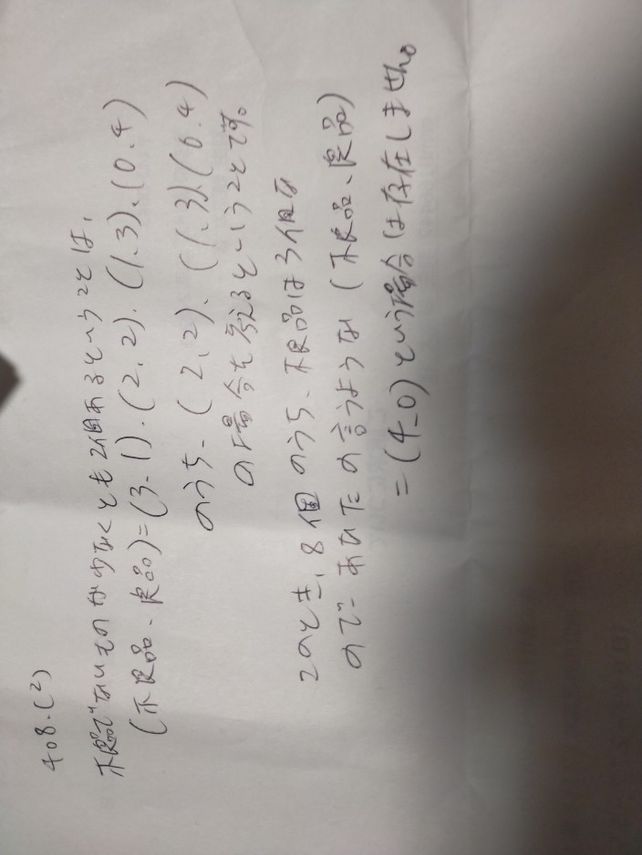 408.(2)
不良品でないものが少なくとも2個あるということは、
(不良品、良品)=(3、1)、(2、2)、(1、3)、(0、4)
のうち、(2、2)、(1、3)、(0、4)
の場合を考えるということです。
このとき、8個のうち、不良品は3個な
のであなたの言うような(不良品、良品)
=(4、0)という場合は存在しません。